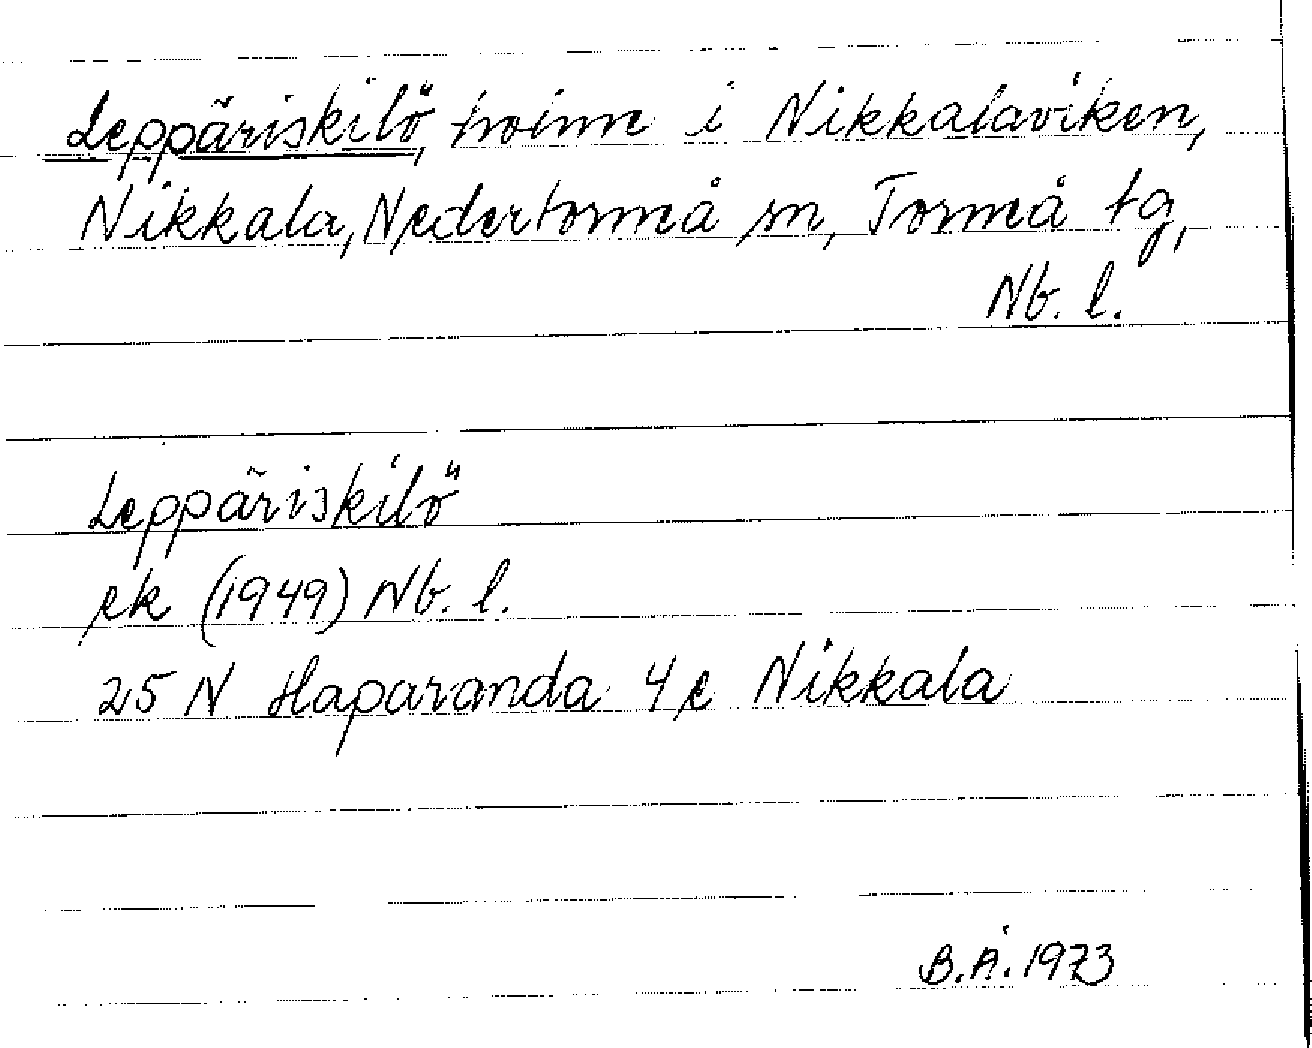 Leppäriskilö, i Nikkalaviken,
Nikkala, Nedertorneå sn, Torneå tg,
Nb. l.
Leppäriskilö
ek (1949) Nb. l.
25 N Haparanda 4 c Nikkala
B.Å. 1973